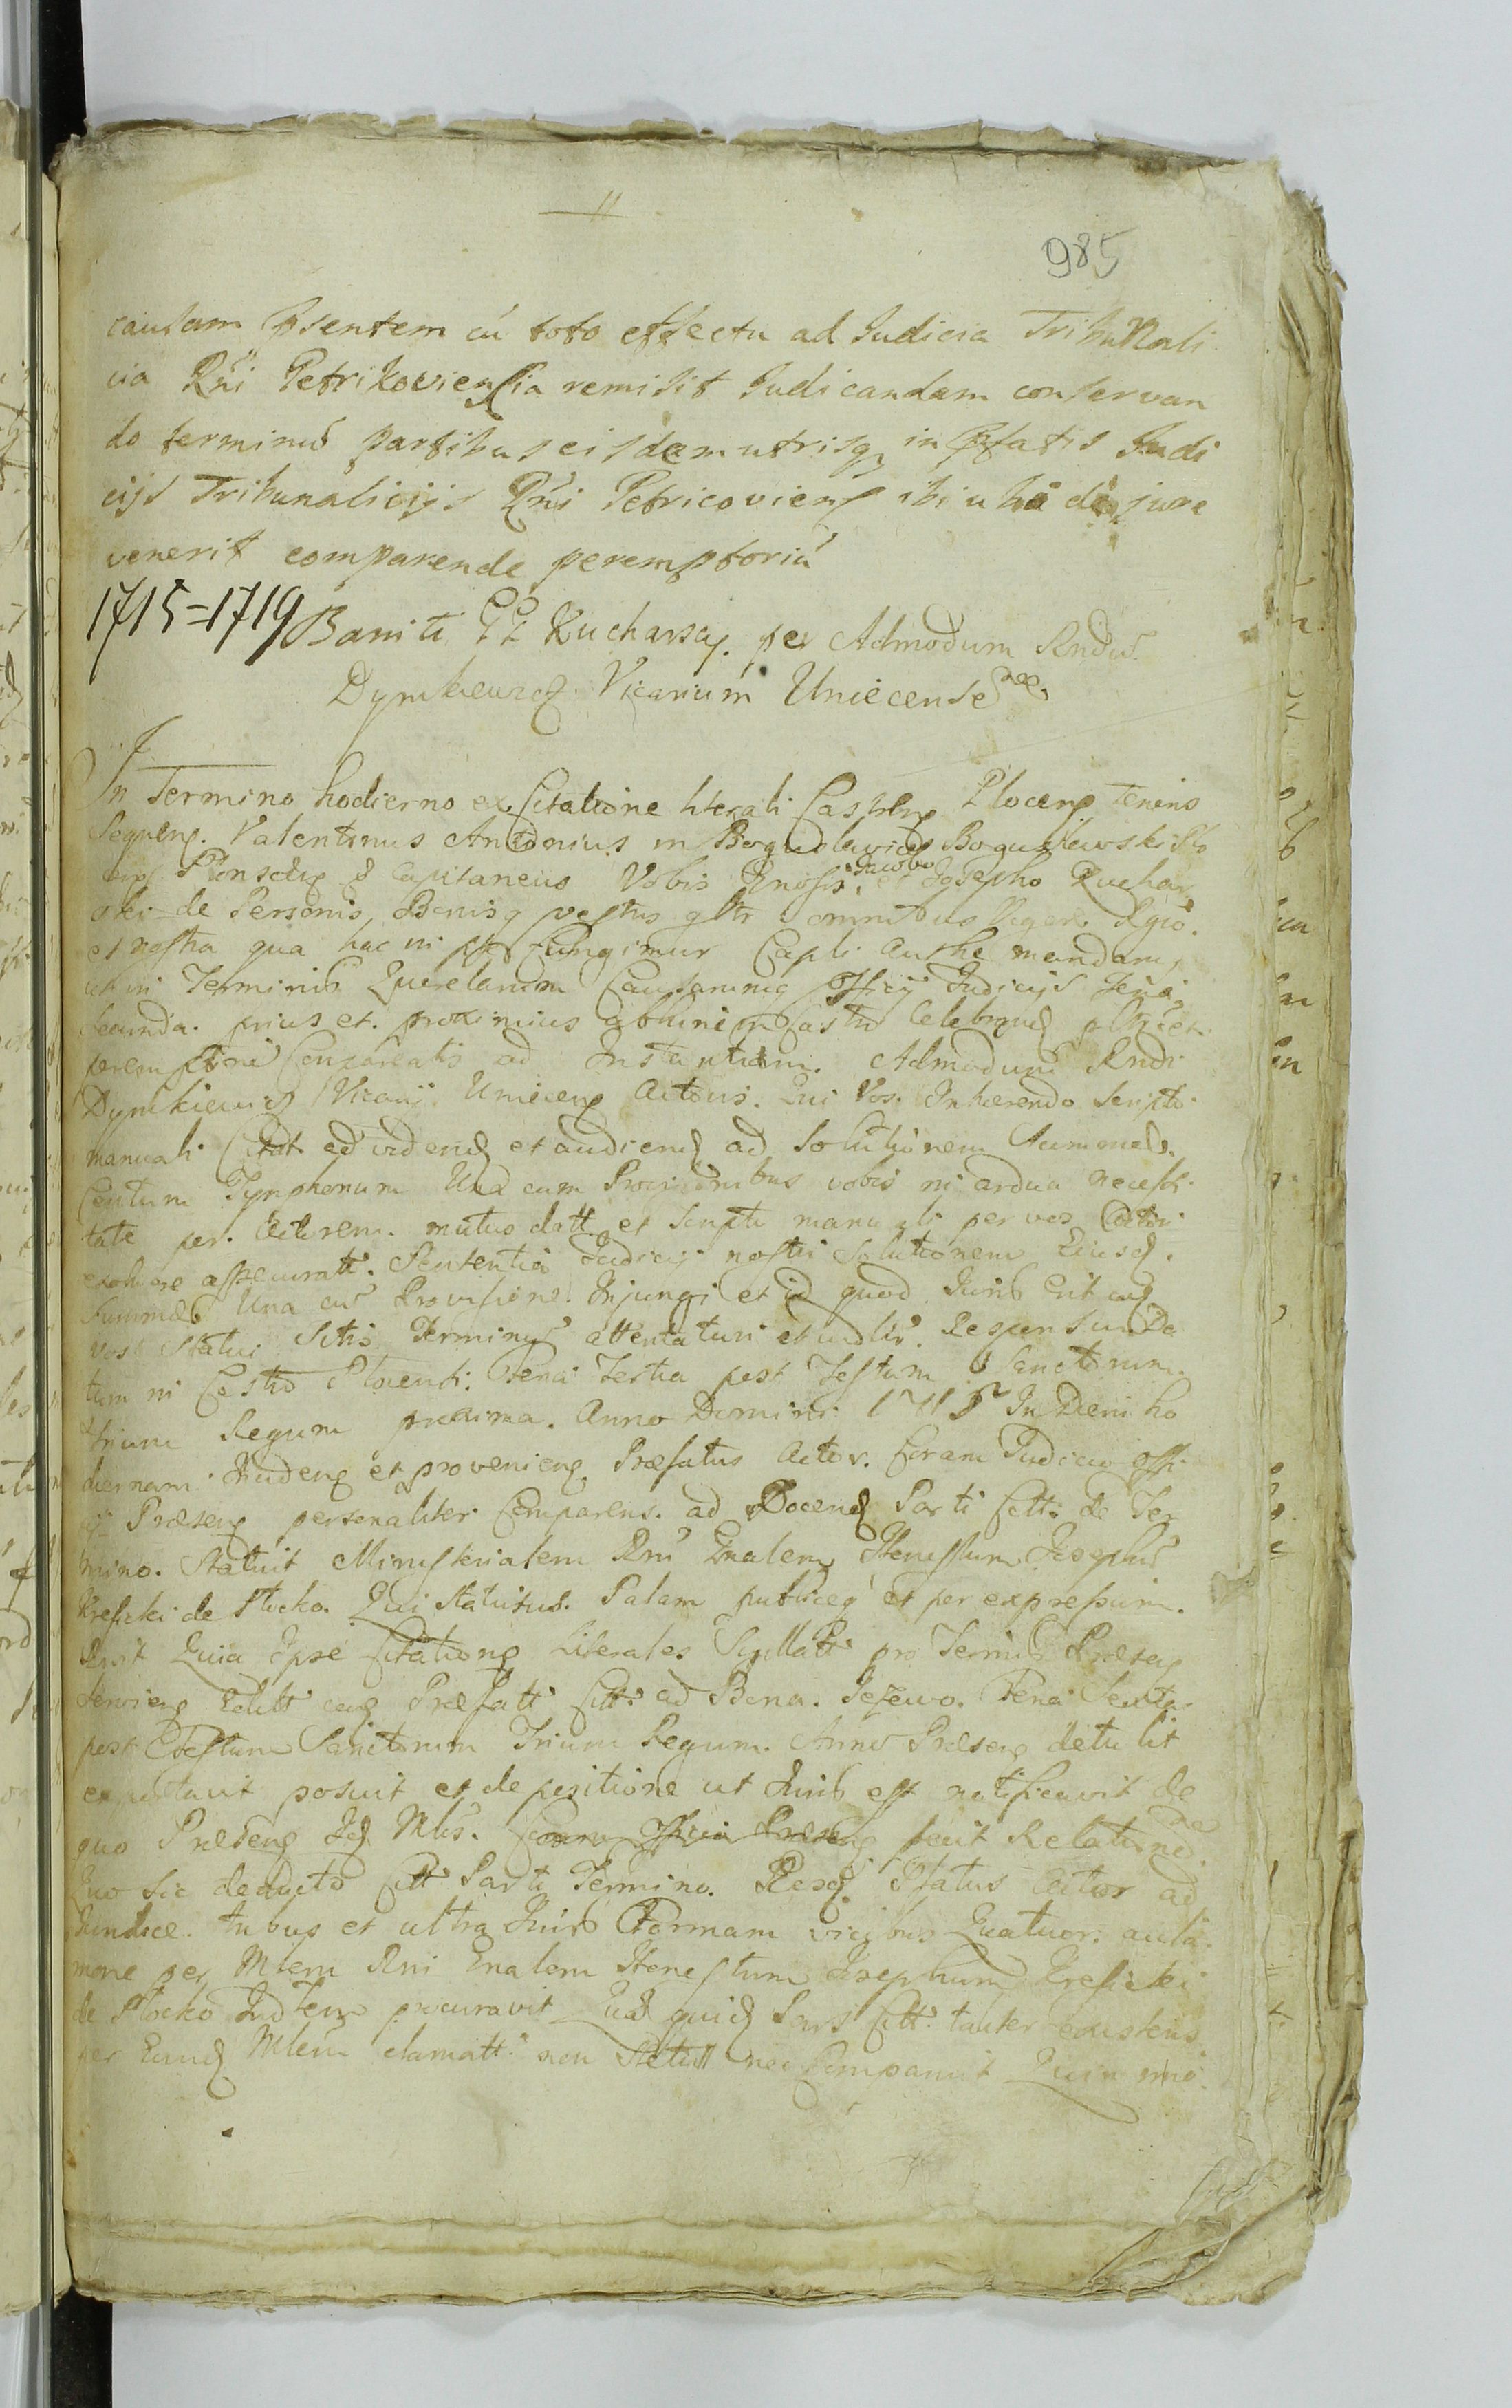 11
985
causam psentem cu toto effectu ad Judicia Tribunali
cia Rni Petrikoviensia remisit Judicandam conservan
do terminu partibus eisdem utrisq in pfatis Judi
cijs Tribunalicijs Rni Petricovien ibi uba de jure
venerit comparende peremptoriu
1715=1719 Baniti GG Kucharscy per Admodum Rndu
Dymkiewicz Vicarium Uniecense
In Termino hodierno ex Citatione literali Castren Plocen Tenins
Sequen. Valentinus Antonius in Boguslawice Boguslawski Plo
cen Plonscens Capitaneus Vobis Gnosis Jacobo et Josepho Kuchar
ski de Personis, Bonisq vestris gltr omnibus
et nostra qua hac in pte fungimur Capli Authe mandam,
ut in Terminis Querelarum Causarumq Officij Judicijs Feria
secunda. prius et. proximius abhinc in Castro Celebrand
peremptorie Compareatis ad Instantiam. Admodum Rndi
Dymkiewicz Vicarij. Uniecen Actoris. Qui Vos. Inhærendo Scripto
manuali Citat ad videnд et audiend ad Solutionem Summæ.
Centum Tynphonum Una cum Provisionibus vobis in ardua necessi
tate per. Actorem. mutuo datt. et Scripto manuali per vos Actori
exolvere assecuratt. Sententia Judicij nostri Solutionem Eiusd.
Summæ Una cu Provisione. Injungi et id quod Juris Erit
vos Statui Sitis Terminu attentaturi et Responsuri Da
tum in Castro Plocensi. Feria Tertia post Festum Sanctorum
trium Regum proxima. Anno Domini 1715 In Diem ho
diernam Inciden et provenien Præfatus Actor. Coram Judicio Offi
cij Præsen personaliter Comparens. ad Docend Parti Citt: de Ter
mino. Statuit Ministerialem Rni Gnalem Honestum Josephu
Kresicki de Plocko. Qui statutus. Palam publiceq et per expressum.
Quia Ipse Citationes Literales Sigillatt pro Termino Præsen
Servien Præfatt Citt. ad Bona. Jezewo. Feria Sexta
post Festum Sanctorum Trium Regum. Anno Præsen detulit
exportavit posuit et de positione ut Juris est notificavit de
quo Præsens Id Mlis. Coram Officio Præsen fecit Relatione
Quo sic deducto Citt Parti Termino. Pfatus Actor ad
tribus et ultra Juris Formam vicibus Quatuor.
per Mlem Rni Gnalem Honestum Josephum Kresicki
de Plocko Indtem procuravit Quæ quid Pars Citt. taliter existens
per Eund Mlem clamatt. non Stetit nec Comparuit Quin imo